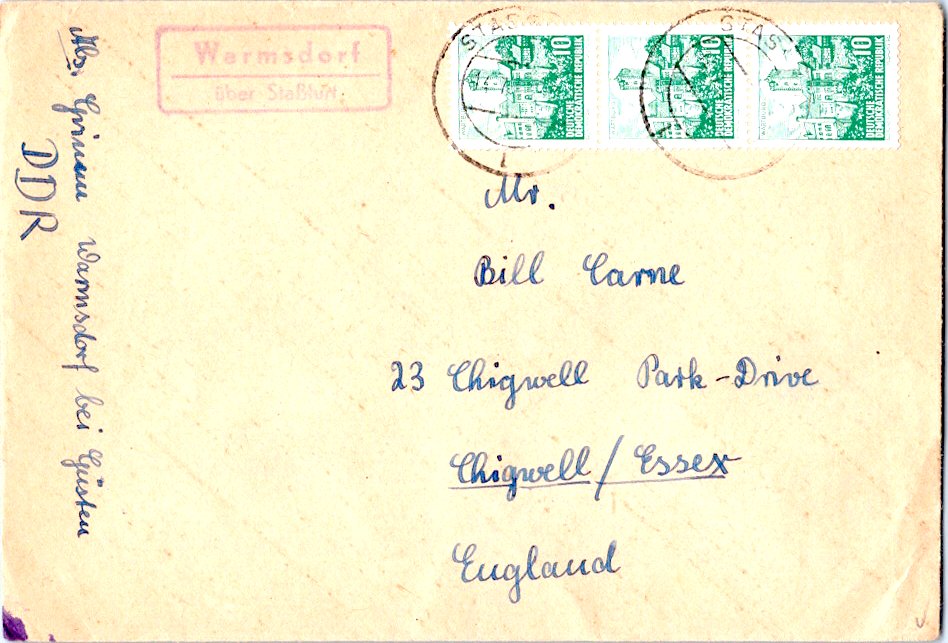 Warmsdorf
über Staßfurt
STASSF
10
DEUTSCHE
DEMOKRATISCHE REPUBLIK
10
DEUTSCHE
DEMOKRATISCHE REPUBLIK
STASS
10
DEUTSCHE
DEMOKRATISCHE REPUBLIK
Abs. Warmsdorf bei Güsten
DDR
Mr.
Bill Carne
23 Chigwell Park-Drive
Chigwell / Essex
England